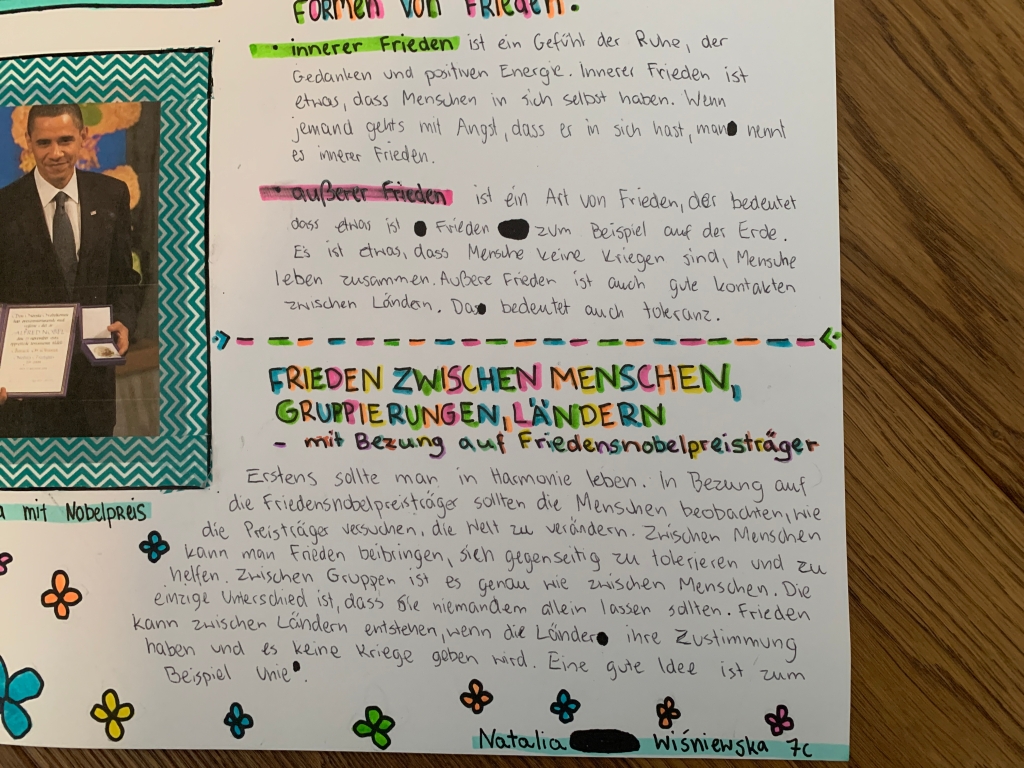 FORMEN VON FRIEDEN:
• innerer Frieden ist ein Gefühl der Ruhe, der
Gedanken und positiven Energie. Innerer Frieden ist
etwas, dass Menschen in sich selbst haben. Wenn
jemand gehts mit Angst, dass er in sich hast, man nennt
es innerer Frieden.
• äußerer Frieden ist ein Art von Frieden, der bedeutet
dass etwas ist Frieden zum Beispiel auf der Erde.
Es ist etwas, dass Mensche keine Kriegen sind, Mensche
leben zusammen. Äußere Frieden ist auch gute kontakten
zwischen Ländern. Das bedeutet auch toleranz.
FRIEDEN ZWISCHEN MENSCHEN,
GRUPPIERUNGEN, LÄNDERN
- mit Bezung auf Friedensnobelpreisträger
Erstens sollte man in Harmonie leben. In Bezung auf
die Friedensnobelpreisträger sollten die Menschen beobachten, wie
die Preisträger versuchen, die Welt zu verändern. Zwischen Menschen
kann man Frieden beibringen, sich gegenseitig zu tolerieren und zu
helfen. Zwischen Gruppen ist es genau wie zwischen Menschen. Die
einzige Unterschied ist, dass Sie niemandem allein lassen sollten. Frieden
kann zwischen Ländern entstehen, wenn die Länder ihre Zustimmung
haben und es keine Kriege geben wird. Eine gute Idee ist zum
Beispiel Unie.
mit Nobelpreis
Natalia Wiśniewska 7c